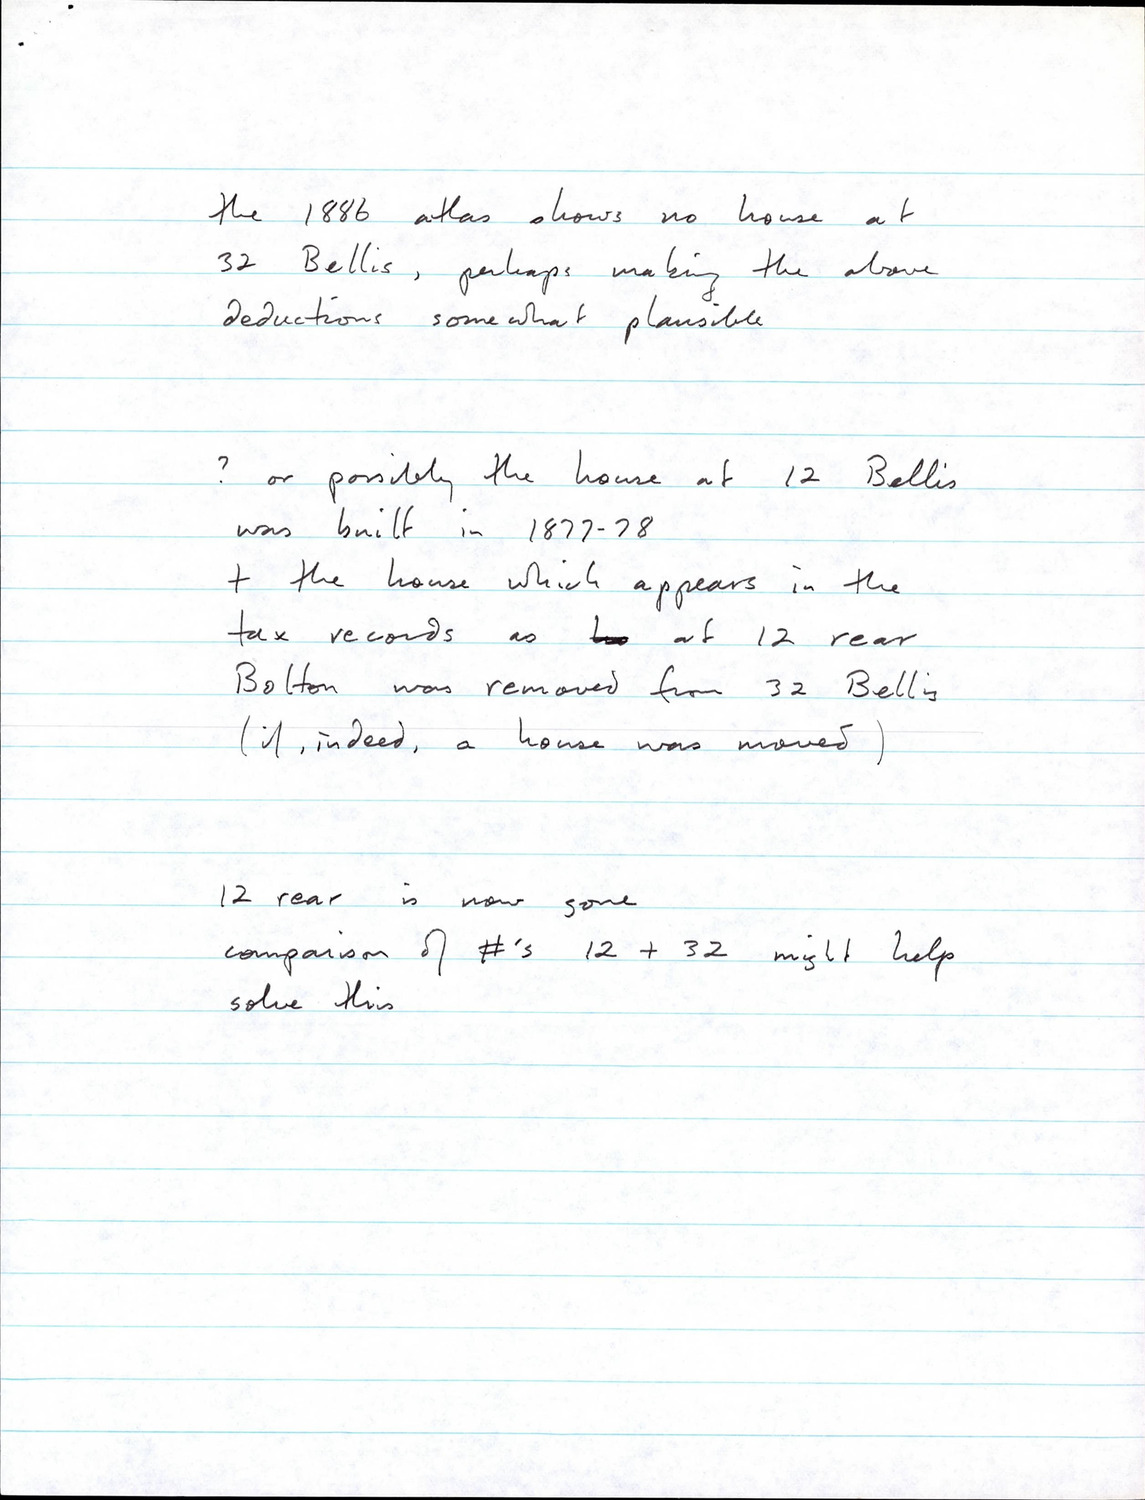 the 1886 atlas shows no house at
32 Bellis, perhaps making the above
deductions somewhat plausible
? or possibly the house at 12 Bellis
was built in 1877-78
+ the house which appears in the
tax records as at 12 rear
Bolton was removed from 32 Bellis
(if, indeed, a house was moved)
12 rear is now gone
comparison of #'s 12 + 32 might help
solve this